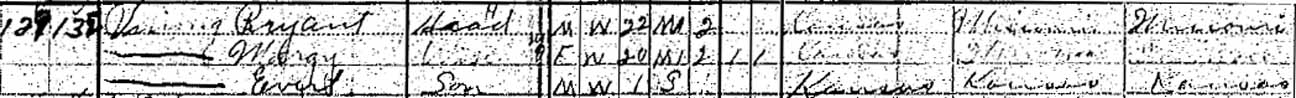 129 132 Bryant Head M W 22 M1 2 Kansas Missouri Missouri
Margy Wife F W 20 M1 2 1 1 Kansas
Evert Son M W 1 S Kansas Kansas Kansas